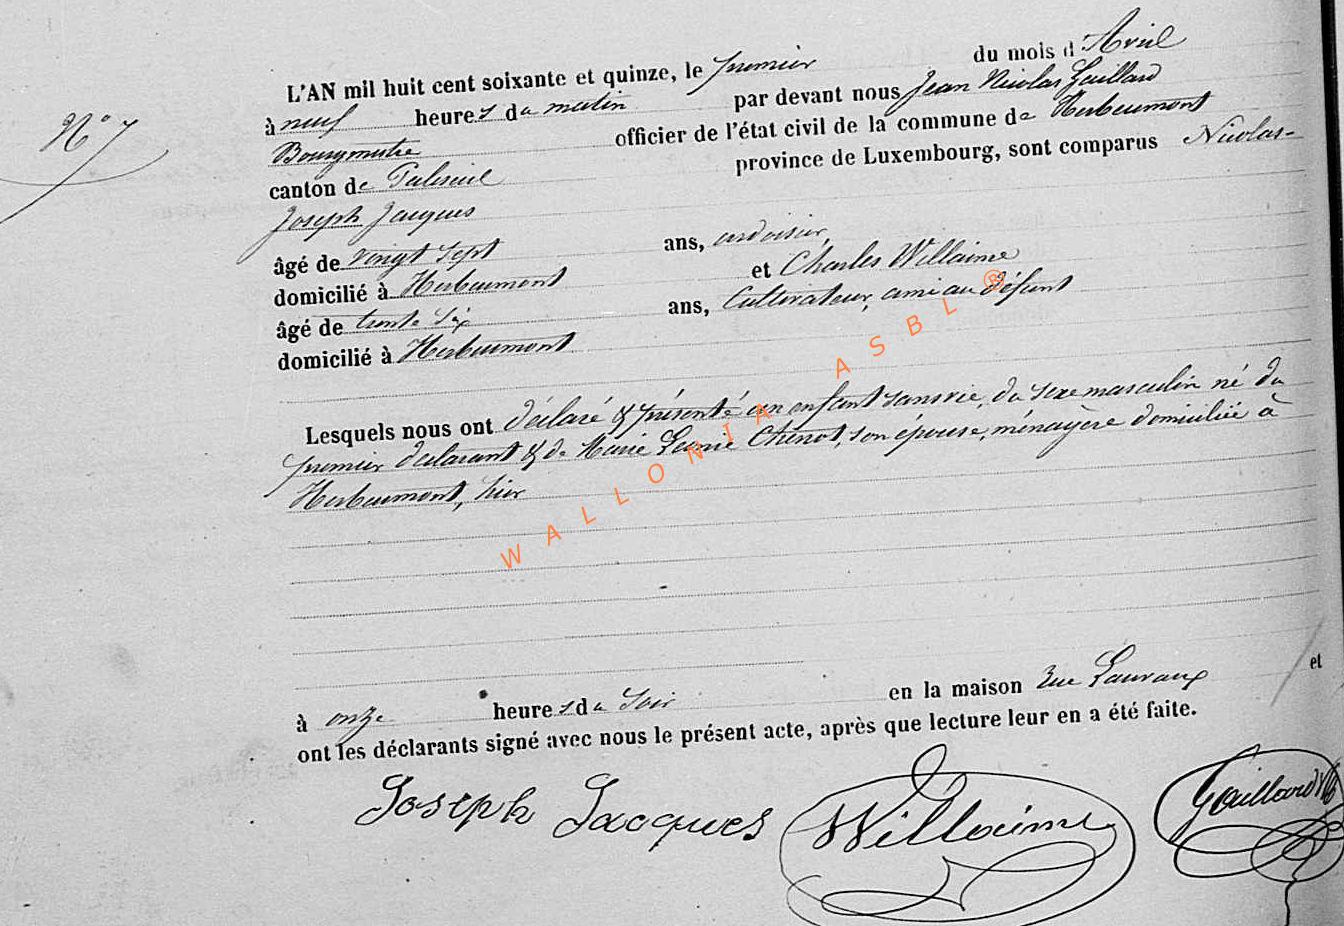 N° 7
L'AN mil huit cent soixante et quinze, le premier du mois d'Avril
à neuf heures du matin par devant nous Jean Nicolas Gaillard
Bourgmestre officier de l'état civil de la commune de Herbeumont
canton de Paliseul province de Luxembourg, sont comparus Nicolas-
Joseph Jacques
âgé de vingt sept ans, ardoisier,
domicilié à Herbeumont et Charles Willaime
âgé de trente six ans, Cultivateur, ami au défunt
domicilié à Herbeumont
Lesquels nous ont déclaré & présenté un enfant sans vie, du sexe masculin né du
premier déclarant & de Marie Chenot, son épouse, ménagère domiciliée à
Herbeumont, hier
à onze heures du Soir en la maison Rue Lauvaux et
ont les déclarants signé avec nous le présent acte, après que lecture leur en a été faite.
Joseph Jacques Willaime Gaillard
WALLONIA ASBL ®